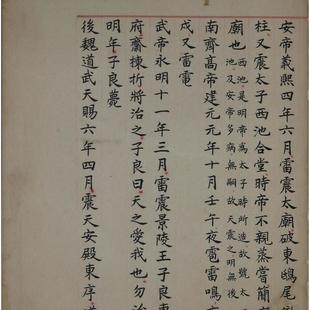 安帝義熙四年六月雷震太廟破東鴟尾
柱又震太子西池合堂時帝不親蒸嘗簡
廟也西池是明帝為太子時所造故號太子
池及安帝多病無嗣故天震之明無後
南齊高帝建元元年十月壬午夜電雷鳴
戍又雷電
武帝永明十一年三月雷震景陵王子良
府齋棟折將治之子良曰天之愛我也勿治
明年子良薨
後魏道武天賜六年四月震天安殿東序